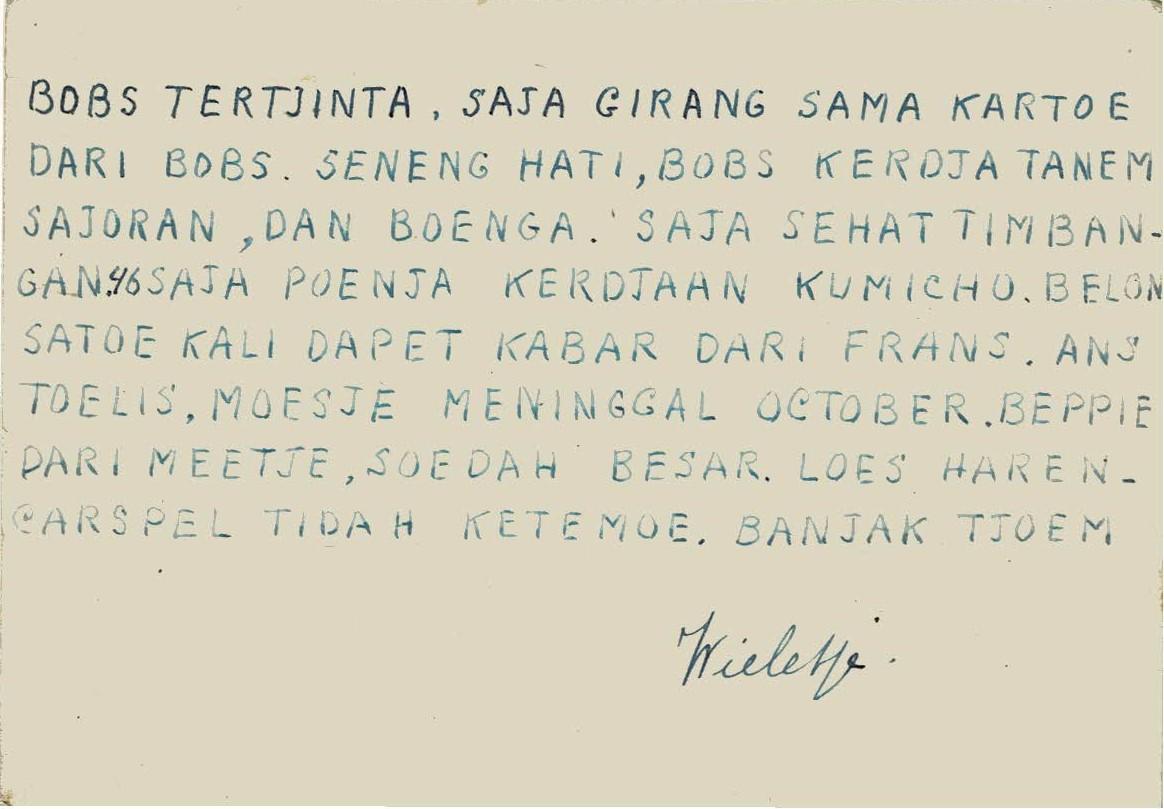 BOBS TERTJINTA, SAJA GIRANG SAMA KARTOE
DARI BOBS. SENENG HATI, BOBS KERDJA TANEM
SAJORAN, DAN BOENGA. SAJA SEHAT TIMBAN-
GAN.46 SAJA POENJA KERDJAAN KUMICHO. BELON
SATOE KALI DAPET KABAR DARI FRANS. ANS
TOELIS, MOESJE MENINGGAL OCTOBER. BEPPIE
DARI MEETJE, SOEDAH BESAR. LOES HAREN-
CARSPEL TIDAH KETEMOE. BANJAK TJOEM
Wieletje.